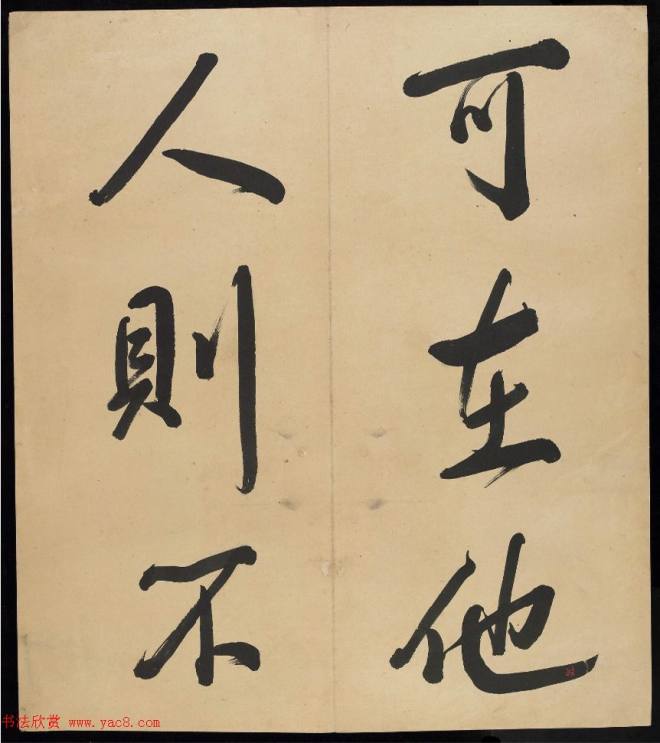 可在他
人則不
书法欣赏 www.yac8.com